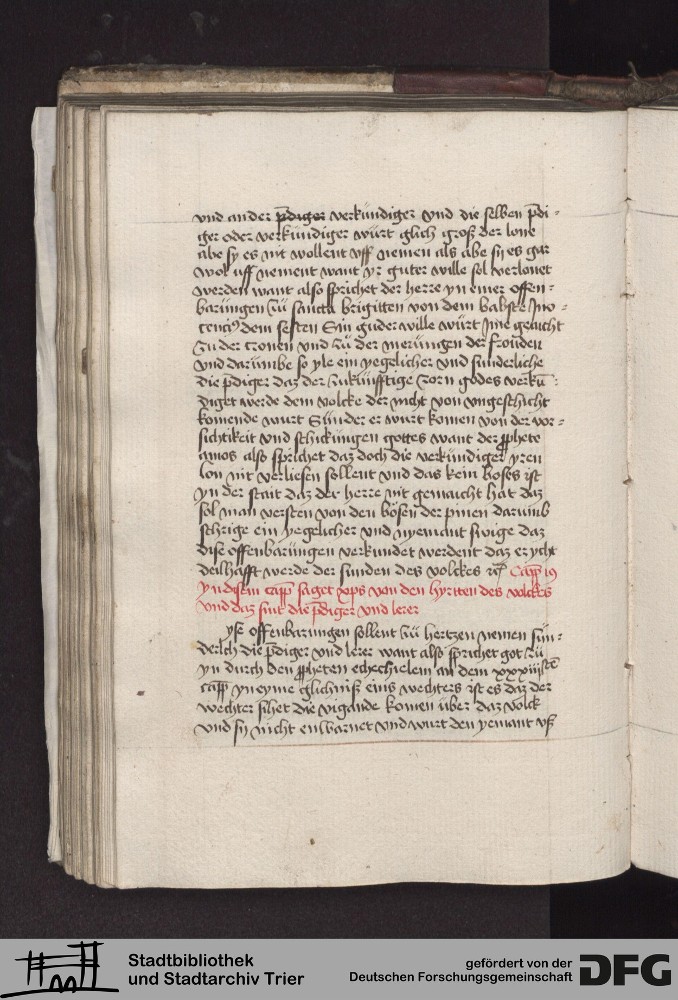 vnd ander p̄diger verkündiger vnd die selben p̄di-
ger oder verkündiger würt glich groß der lone
abe sy es nit wollent vff nemen als abe sy es gar
wol uff nement want yr guter wille sol verlonet
werden want also sprichet der herre yn einer offen-
barungen zü sancta brigitten von dem babste Jno-
cencio dem sesten Sin guder wille würt yme gedicht
zu der cronen vnd zü der merüngen der frouden
vnd darumbe so yle ein yegelicher vnd sunderliche
die p̄diger daz der zukunfftige zorn godes verkü-
diget werde dem volcke der nicht von vngeschicht
komende wurt Sünder er wurt komen von der vor-
sichtikeit vnd schickungen gottes want der ꝓphete
amos also sprichet daz doch die verkundiger yren
lon nit verliesen sollent vnd das kein boses ist
yn der stait daz der herre nit gemaicht hat daz
sol man versten von den bosen der pinen darumb
schrige ein yegelicher vnd nyemant swige daz
dise offenbarüngen verkundet werdent daz er ycht
deilhafft werde der sunden des volckes ⁊c Capp̄ 19
yn disem capp̄ saget xp̄s von den hyrtten des volckes
vnd daz sint die p̄diger vnd lerer
yse offenbarungen sollent zü hertzen nemen sün-
derlch die p̄diger vnd lerer want also sprichet got zü
yn durch den ꝓpheten ezechielem an dem xxxiijsten
capp̄ yn eyme glichniß eins wechters ist es daz der
wechter sihet die vigande komen über daz volck
vnd sy nicht enwarnet vnd wurt den yemant vß
Stadtbibliothek
und Stadtarchiv Trier
gefördert von der
Deutschen Forschungsgemeinschaft
DFG